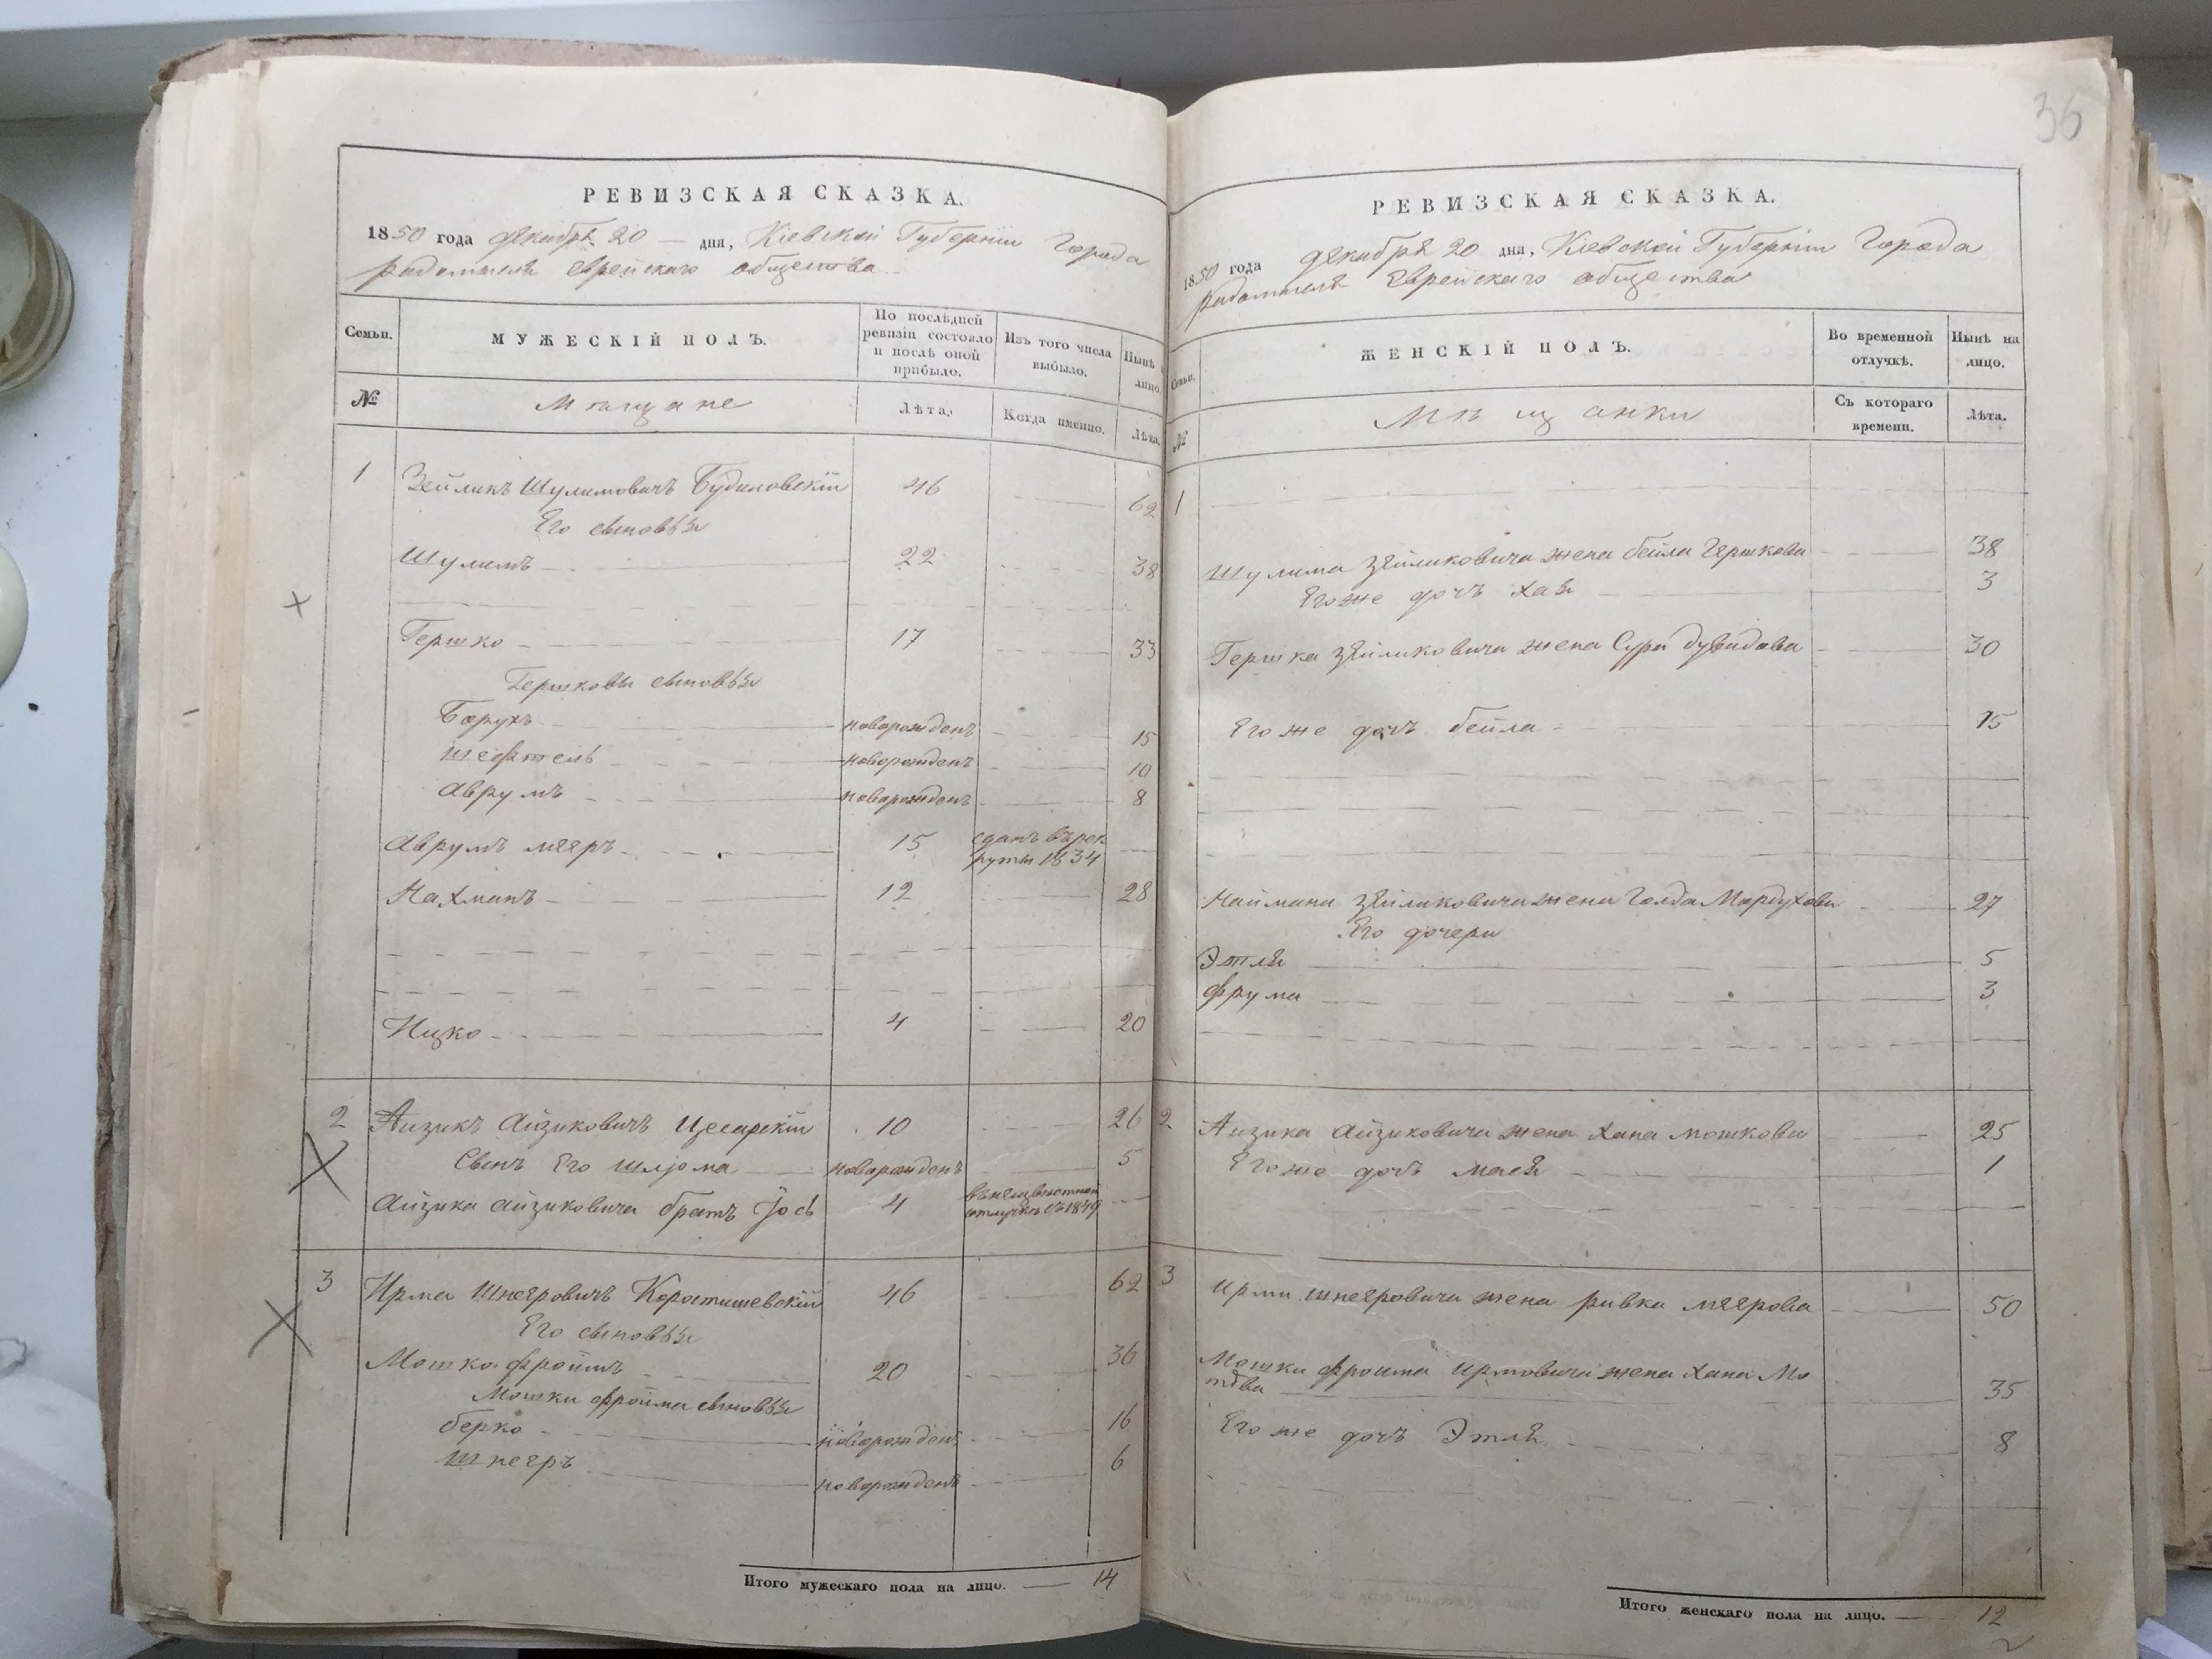 РЕВИЗСКАЯ СКАЗКА.
1850 года декабря 20 дня, Кіевской Губерніи Города
радомысля Еврейскаго общества
Семьи.
МУЖЕСКІЙ ПОЛЪ.
По послѣдней ревизіи состояло и послѣ оной прибыло.
Изъ того числа выбыло.
Нынѣ лицо.
№
Мѣщане
Лѣта.
Когда именно.
Лѣта.
1 Зейликъ Шулимовичъ Будиловскій 46 62
Его сыновья
Шулимъ 22 38
Гершко 17 33
Гершковы сыновья
Барухъ новорожденъ 15
Шефтель новорожденъ 10
Аврумъ новорожденъ 8
Аврумъ мееръ 15 сданъ въ рекруты 1834
Нахманъ 12 28
Ицко 4 20
2 Аизикъ Айзиковичъ Цесарскій 10 26
Сынъ Его шлюма новорожденъ 5
Айзика Айзиковича братъ Іось 4 въ неизвестной отлучкѣ съ 1849
3 Ирма Шнееровичъ Коростишевскій 46 62
Его сыновья
Мошко фроимъ 20 36
Мошки фройма сыновья
берко новорожденъ 16
шнееръ новорожденъ 6
Итого мужескаго пола на лицо. 14
36
РЕВИЗСКАЯ СКАЗКА.
1850 года декабря 20 дня, Кіевской Губерніи Города
радомысля Еврейскаго общества
Семьи.
ЖЕНСКІЙ ПОЛЪ.
Во временной отлучкѣ.
Нынѣ на лицо.
№
Мѣщанки
Съ котораго времени.
Лѣта.
1
Шулима Зейликовича жена бейла Гершкова 38
Его же дочь хая 3
Гершка Зейликовича жена Сура дувидова 30
Его же дочь бейла 15
Наймана Зейликовича жена Голда Мардухова 27
Его дочери
Этля 5
фрума 3
2 Аизика Айзиковича жена хана мошкова 25
Его же дочь мася 1
3 Ирми шнееровича жена ривка меерова 50
Мошки фроима Ирмовича жена хана Мо
това 35
Его же дочь Этля 8
Итого женскаго пола на лицо. 12